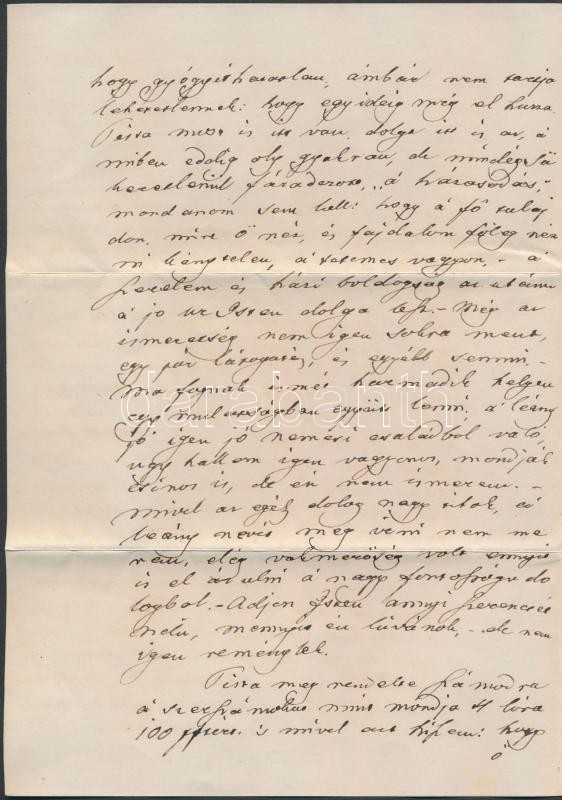 hogy gyógyithatatlan, ámbár nem tartja
lehetetlennek: hogy egy ideig még el huzza.
Tista most is itt van, dolga itt is az, á
miben eddig oly gyakran, de mindég si
keretlenül fáradozott, "á házasodás,"
mondanom sem kell: hogy á fő tulaj
don, mire Ő néz, és fájdalom főleg néz
ni kénytelen, á tetemes vagyon, - á
szerelem és házi boldogság az után
á jó Ur Isten dolga lesz. - Még az
ismeretség nem igen sokra ment,
egy pár látogatás, és egyébb semmi. -
Ma fognak ismét harmadik helyen
egy mulatságban együtt lenni, á leány
jó igen jó nemesi családból való,
ugy hallom igen vagyonos, mondják
csinos is, de én nem ismerem. -
Mivel az egész dolog nagy titok, á
leány nevét még irni nem me
rem, elég vakmerőség volt ennyit
is el árulni á nagy fontosságu do
logbol. - Adjon Isten annyi szerencsét
nélu, mennyit én kivánok, - de nem
igen reménylek.
Tista meg rendelte számodra
á szerszámokat mint mondja 4 lóra
100 pfrtért. is mivel azt hiszem: hogy
ő
darabanth